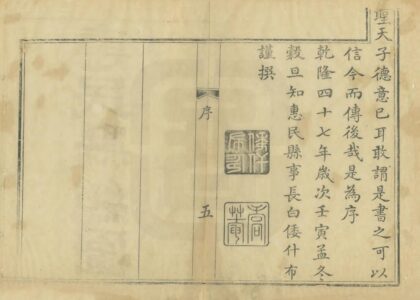 聖天子德意已耳敢謂是書之可以
信今而傳後哉是為序
乾隆四十七年歲次壬寅孟冬
穀旦知惠民縣事長白倭什布
謹撰
序
五